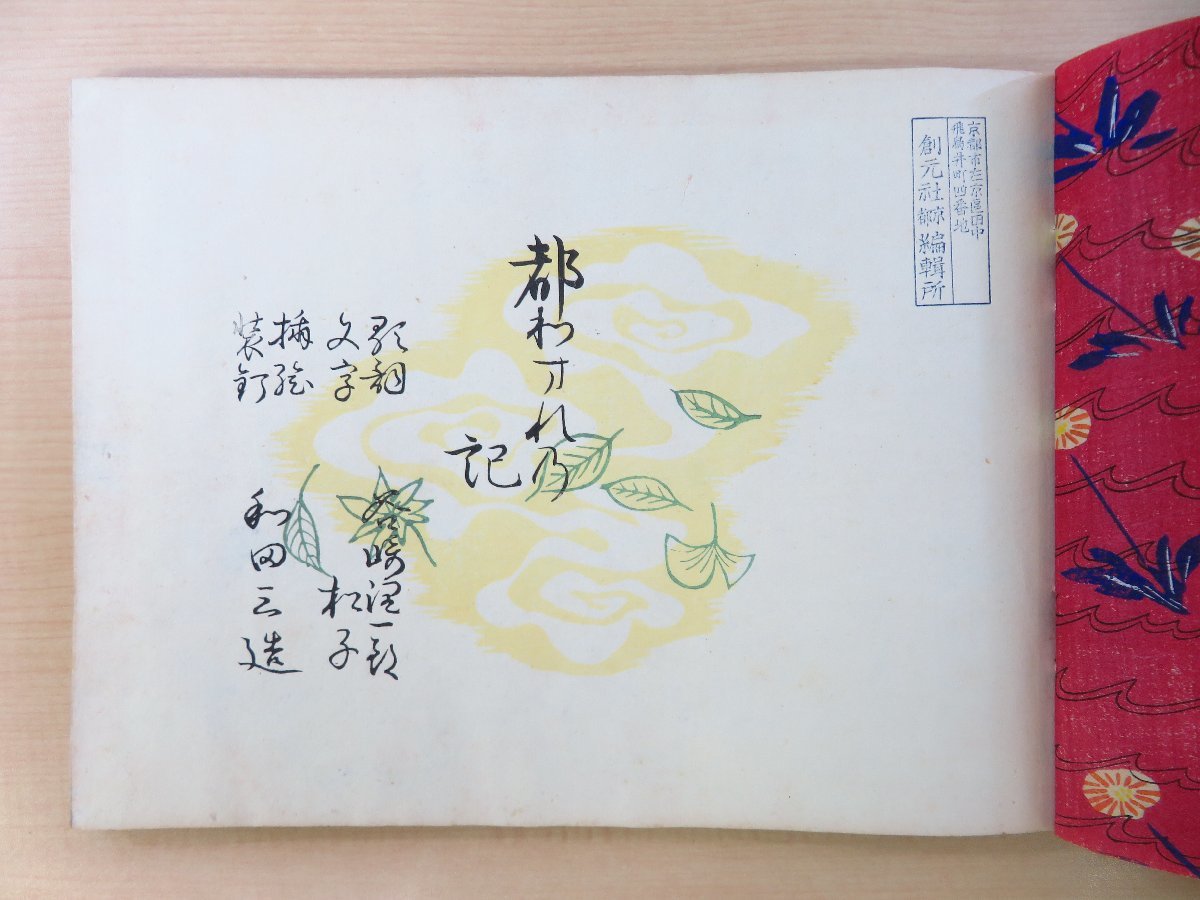 京都市左京區田中
飛鳥井町四番地
創元社京都編輯所
都わすれの
記
歌詞 谷崎潤一郎
文字 松子
挿絵
装釘 和田三造